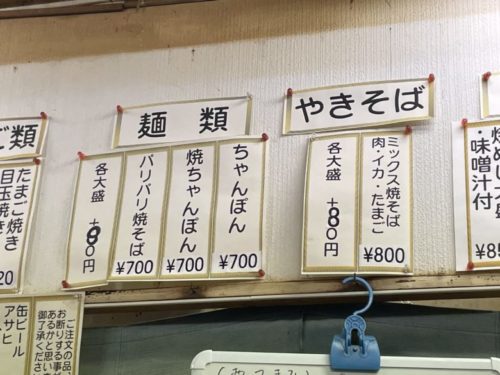 ご類
たまご焼き
目玉焼き
20
麺 類
ちゃんぽん
¥700
焼ちゃんぽん
¥700
バリバリ焼そば
¥700
各大盛 +80円
やきそば
ミックス焼そば
肉・イカ・たまご
¥800
各大盛 +80円
・味噌汁付
¥85
ご注文の品、
お断りする事
あるかと思い
御了承ください
缶ビール
アサヒ